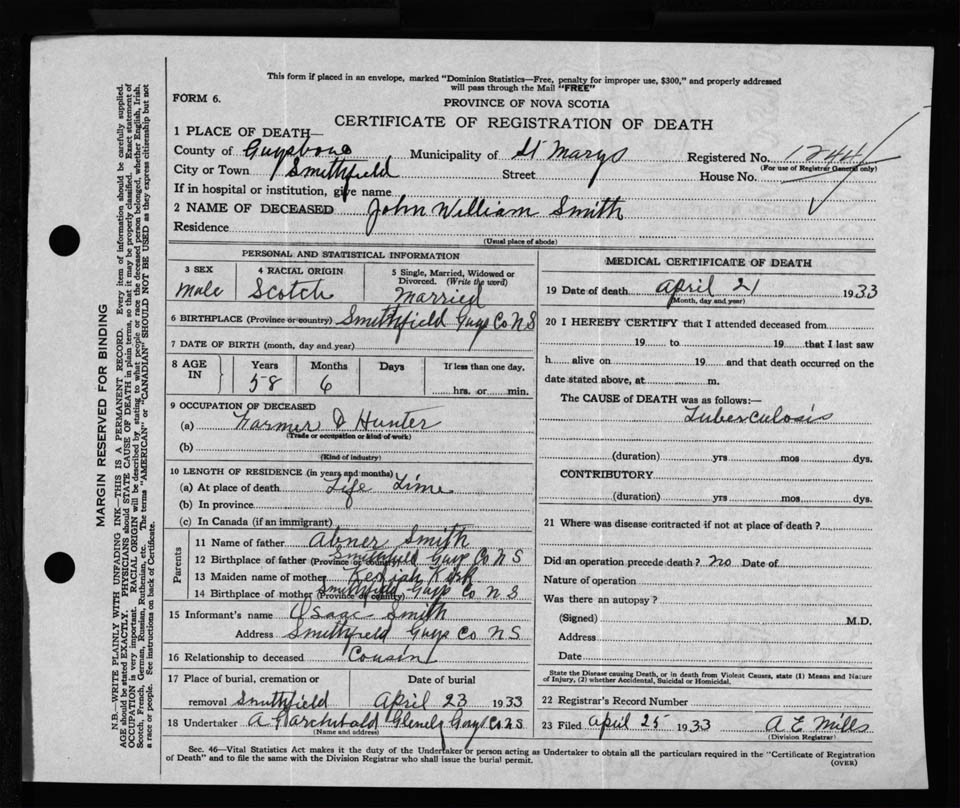 This form if placed in an envelope, marked "Dominion Statistics—Free, penalty for improper use, $300," and properly addressed
will pass through the Mail "FREE"
FORM 6.
PROVINCE OF NOVA SCOTIA
CERTIFICATE OF REGISTRATION OF DEATH
1 PLACE OF DEATH—
County of Guysboro Municipality of St Marys Registered No. 1244
(For use of Registrar General only)
City or Town Smithfield Street House No.
If in hospital or institution, give name
2 NAME OF DECEASED John William Smith
Residence
(Usual place of abode)
PERSONAL AND STATISTICAL INFORMATION
3 SEX 4 RACIAL ORIGIN 5 Single, Married, Widowed or Divorced. (Write the word)
Male Scotch Married
6 BIRTHPLACE (Province or country) Smithfield Guys Co N S
7 DATE OF BIRTH (month, day and year)
8 AGE IN Years Months Days If less than one day,
58 6 hrs. or min.
9 OCCUPATION OF DECEASED
(a) Farmer & Hunter
(Trade or occupation or kind of work)
(b)
(Kind of industry)
10 LENGTH OF RESIDENCE (in years and months)
(a) At place of death Life Time
(b) In province
(c) In Canada (if an immigrant)
Parents
11 Name of father Abner Smith
12 Birthplace of father (Province or country) Smithfield Guys Co N S
13 Maiden name of mother Keziah
14 Birthplace of mother (Province or country) Smithfield Guys Co N S
15 Informant's name Isaac Smith
Address Smithfield Guys Co N S
16 Relationship to deceased Cousin
17 Place of burial, cremation or Date of burial
removal Smithfield April 23 1933
18 Undertaker A Archibald Glenelg Guys Co N.S.
(Name and address)
MEDICAL CERTIFICATE OF DEATH
19 Date of death April 21 1933
(Month, day and year)
20 I HEREBY CERTIFY that I attended deceased from
19 to 19 that I last saw
h alive on 19 and that death occurred on
date stated above, at m.
The CAUSE of DEATH was as follows:—
Tuberculosis
(duration) yrs mos dys.
CONTRIBUTORY
(duration) yrs mos dys.
21 Where was disease contracted if not at place of death?
Did an operation precede death? No Date of
Nature of operation
Was there an autopsy?
(Signed) M.D.
Address
Date
State the Disease causing Death, or in death from Violent Causes, state (1) Means and Nature
of Injury, (2) whether Accidental, Suicidal or Homicidal.
22 Registrar's Record Number
23 Filed April 25 1933 A E Mills
(Division Registrar)
Sec. 46—Vital Statistics Act makes it the duty of the Undertaker or person acting as Undertaker to obtain all the particulars required in the "Certificate of Registration
of Death" and to file the same with the Division Registrar who shall issue the burial permit.
(OVER)
MARGIN RESERVED FOR BINDING
N.B.—WRITE PLAINLY WITH UNFADING INK—THIS IS A PERMANENT RECORD. Every item of information should be carefully supplied.
AGE should be stated EXACTLY. PHYSICIANS should STATE CAUSE OF DEATH in plain terms, so that it may be properly classified. Exact statement of
OCCUPATION is very important. RACIAL ORIGIN will be described by stating to what people or race the deceased person belonged, whether English, Irish,
Scotch, French, German, Russian, Ruthenian, etc. The terms "AMERICAN" or "CANADIAN" SHOULD NOT BE USED as they express citizenship but not
a race or people. See instructions on back of Certificate.